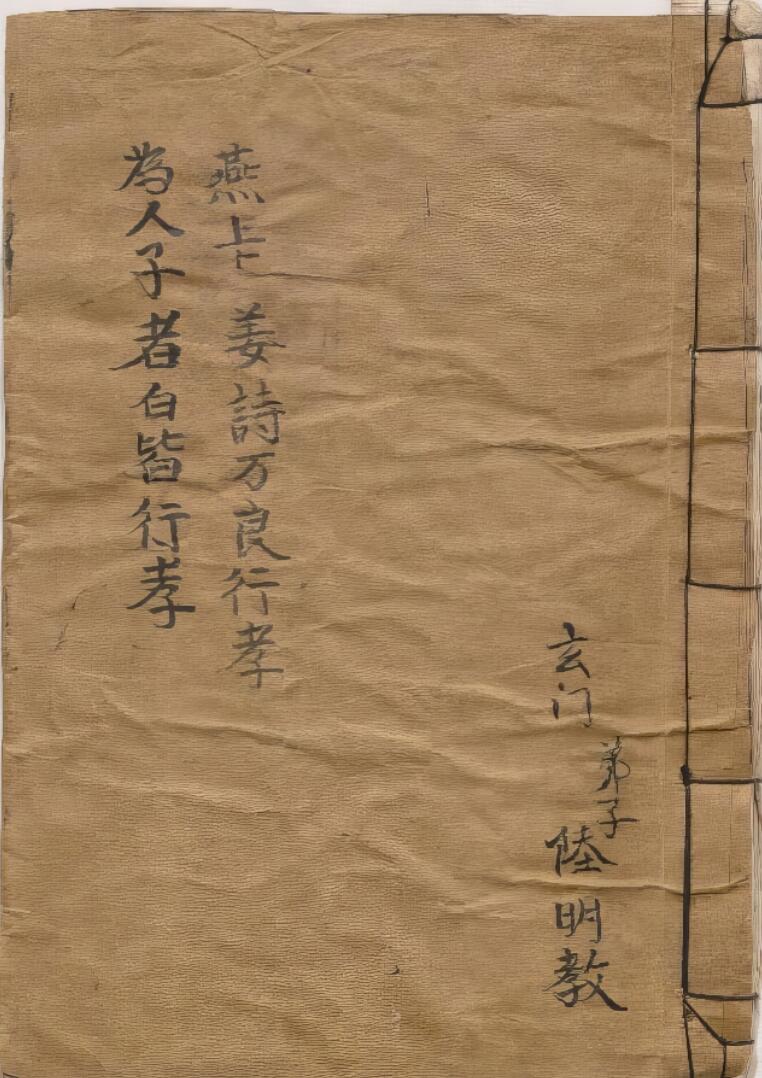 玄门弟子陸明教
燕姜詩万良行孝
為人子者白皆行孝